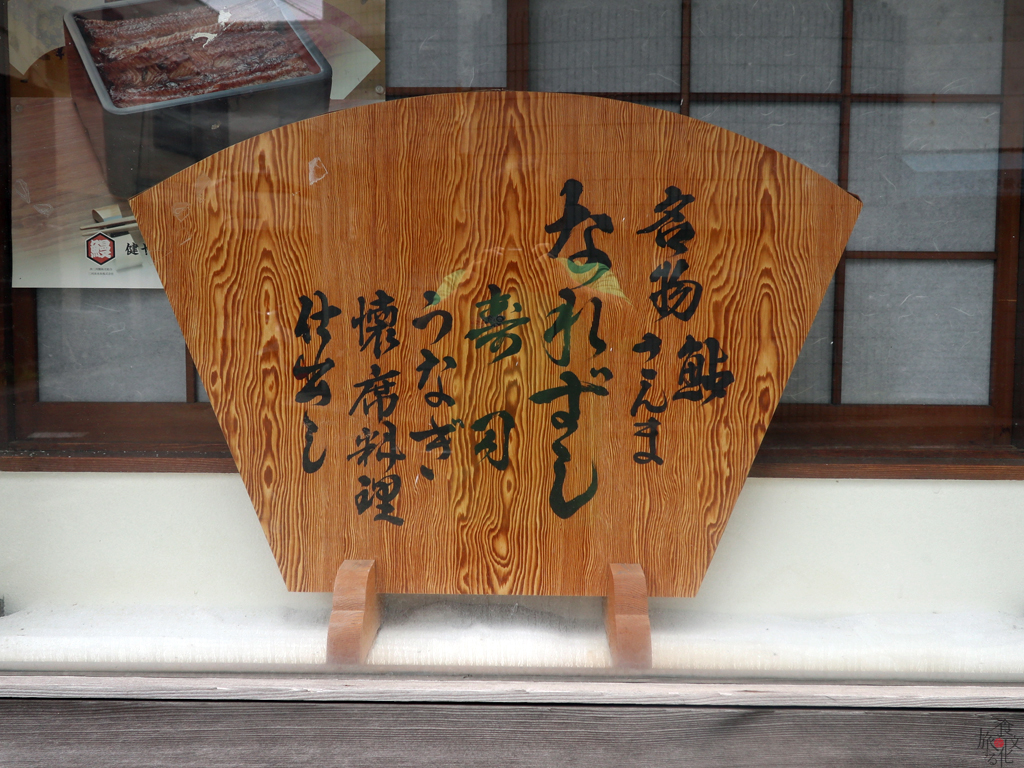 名物
鮎
さんま
なれずし
寿司
うなぎ
懐席料理
仕出し